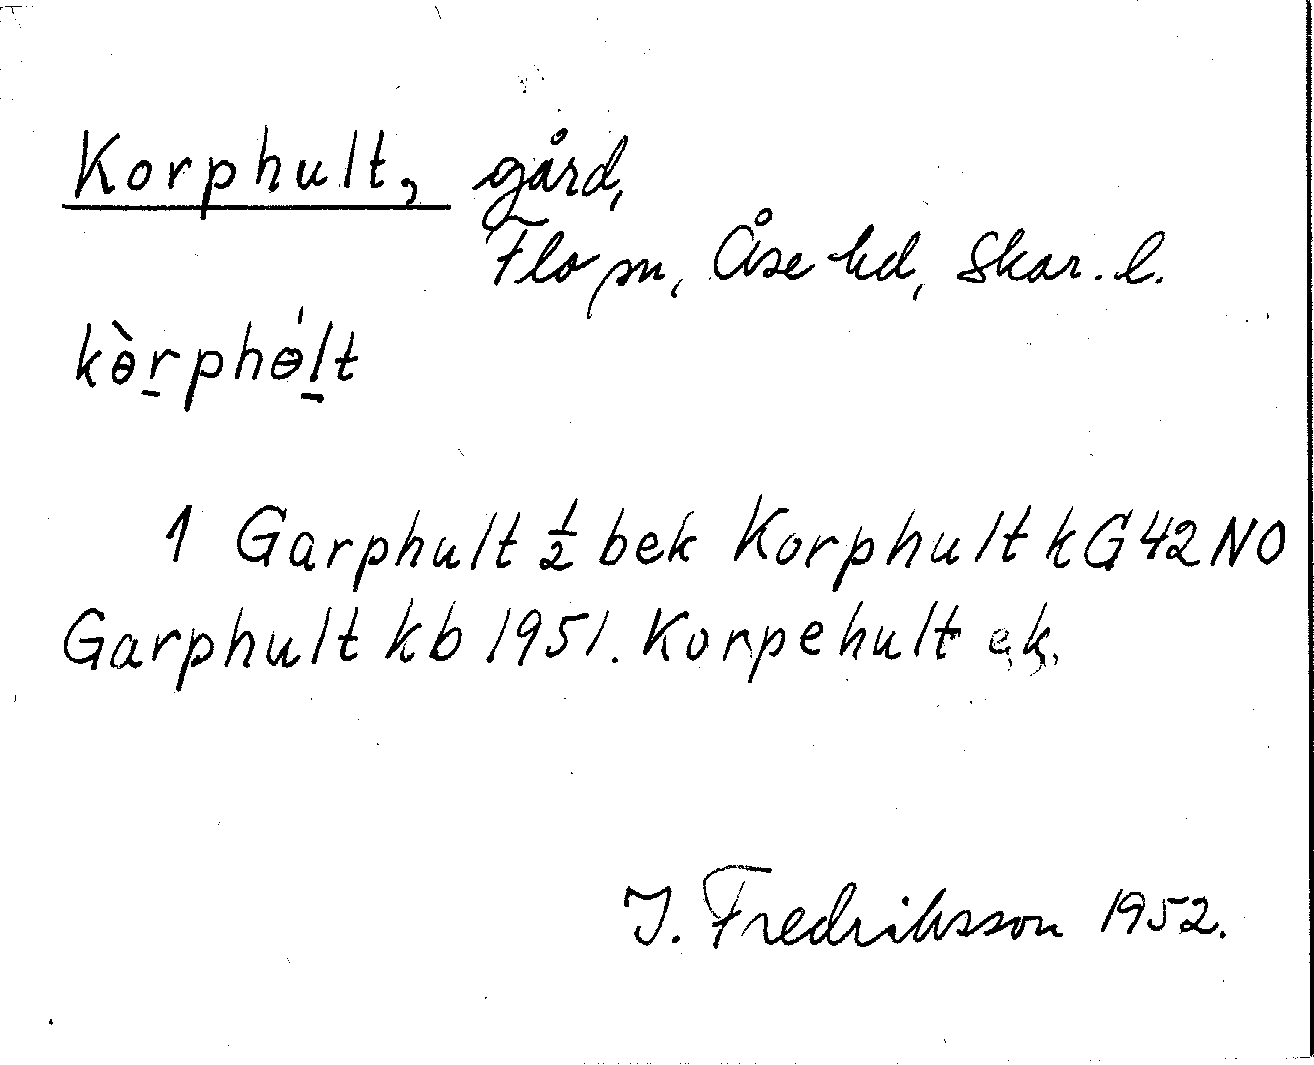 Korphult, gård,
Flo sn, Åse hd, Skar. l.
kɵ̀r̲phɵ́l̲t
1 Garphult ½ bek Korphult kG42NO
Garphult kb 1951. Korpehult ek.
J. Fredriksson 1952.